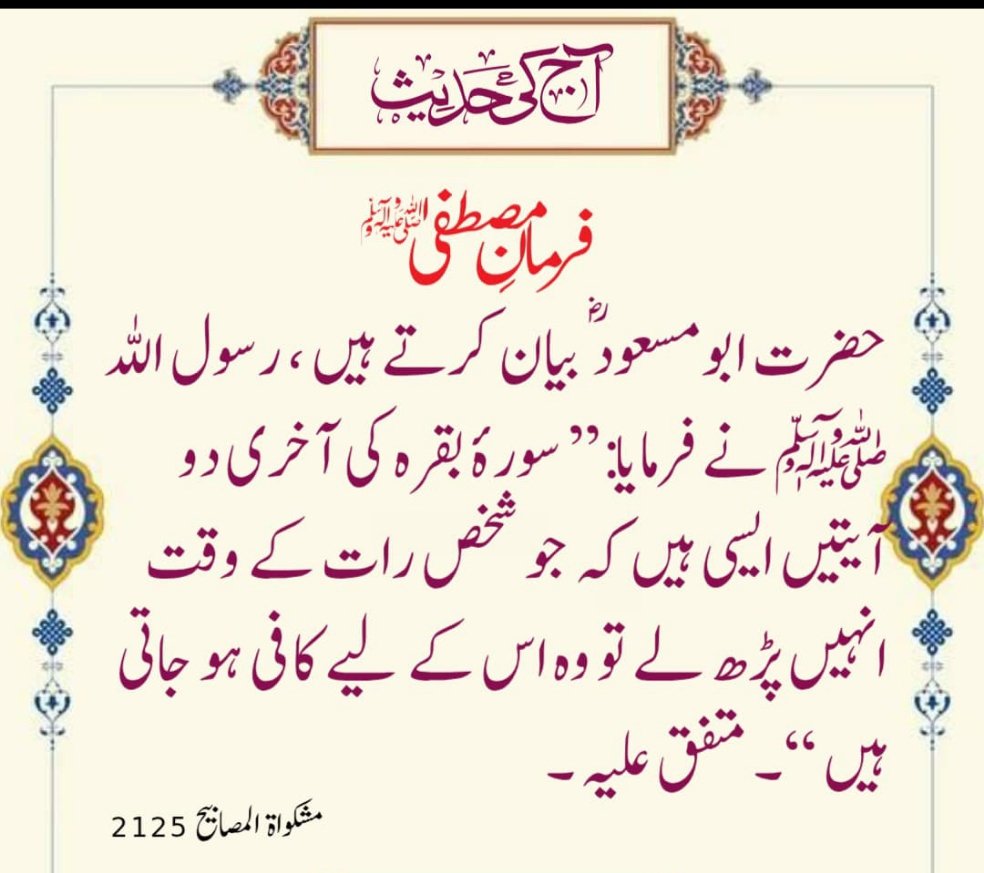 آج کی حدیث
فرمانِ مصطفی ﷺ
حضرت ابو مسعودؓ بیان کرتے ہیں، رسول اللہ
ﷺ نے فرمایا: ”سورۂ بقرہ کی آخری دو
آیتیں ایسی ہیں کہ جو شخص رات کے وقت
انہیں پڑھ لے تو وہ اس کے لیے کافی ہو جاتی
ہیں“۔ متفق علیہ۔
مشکواۃ المصابیح 2125